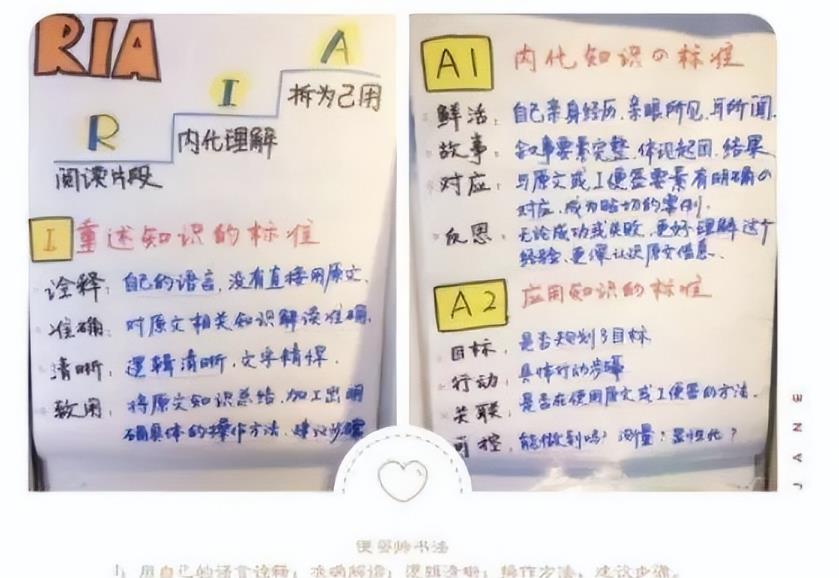 RIA
A
拆为己用
I
内化理解
R
阅读片段
I 重述知识的标准
诠释：自己的语言，没有直接用原文。
准确：对原文相关知识解读准确。
清晰：逻辑清晰，文字精悍。
致用：将原文知识总结、加工出明
确具体的操作方法、建议步骤
A1 内化知识の标准
鲜活：自己亲身经历，亲眼所见，耳所闻。
故事：叙事要素完整，体现起因、结果
对应：与原文或I便签要素有明确の
对应，成为贴切的案例。
反思：无论成功或失败，更好理解这个
经验、更深认识原文信息。
A2 应用知识的标准
目标，是否规划了目标
行动：具体行动步骤
关联：是否在使用原文或I便签的方法。
可控，能做到吗？测量？显性化？
JANE
便签师书法
1、用自己的语言诠释；准确解读；逻辑清晰；操作方法、建议步骤。